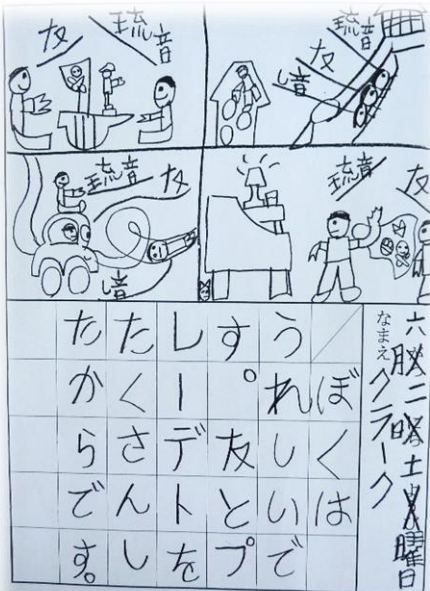 友
琉音
琉音
友
し音
琉音
友
し音
琉音
友
六 二 土 曜日
なまえ クラーク
ぼくは
うれしいで
す。友とプ
レーデトを
たくさんし
たからです。